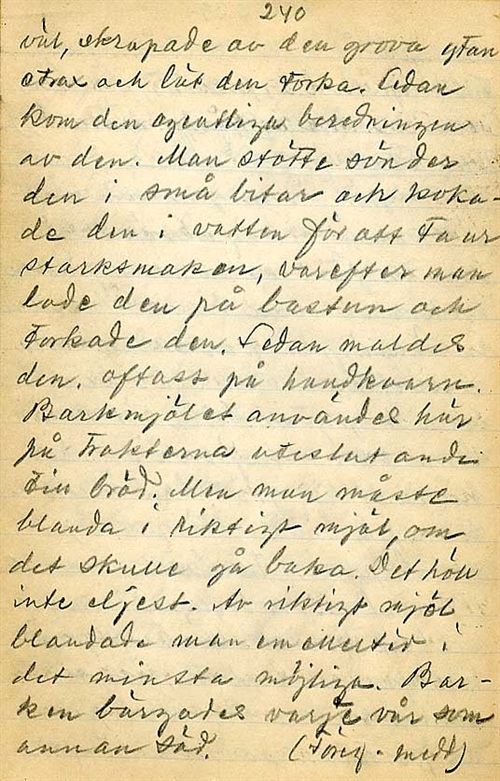 240
väl, skrapade av den grova ytan
strax och lät den torka. Sedan
kom den egentliga beredningen
av den. Man stötte sönder
den i små bitar och koka-
de den i vatten för att ta ur
starksmaken, varefter man
lade den på bastun och
torkade den. Sedan maldes
den, oftast på handkvarn.
Barkmjölet användes här
på trakterna uteslutande
till bröd. Men man måste
blanda i riktigt mjöl, om
det skulle gå baka. Det höll
inte eljest. Av riktigt mjöl
blandade man emellertid i
det minsta möjliga. Bar-
ken bärgades varje vår som
annan säd. (Föreg. medd)